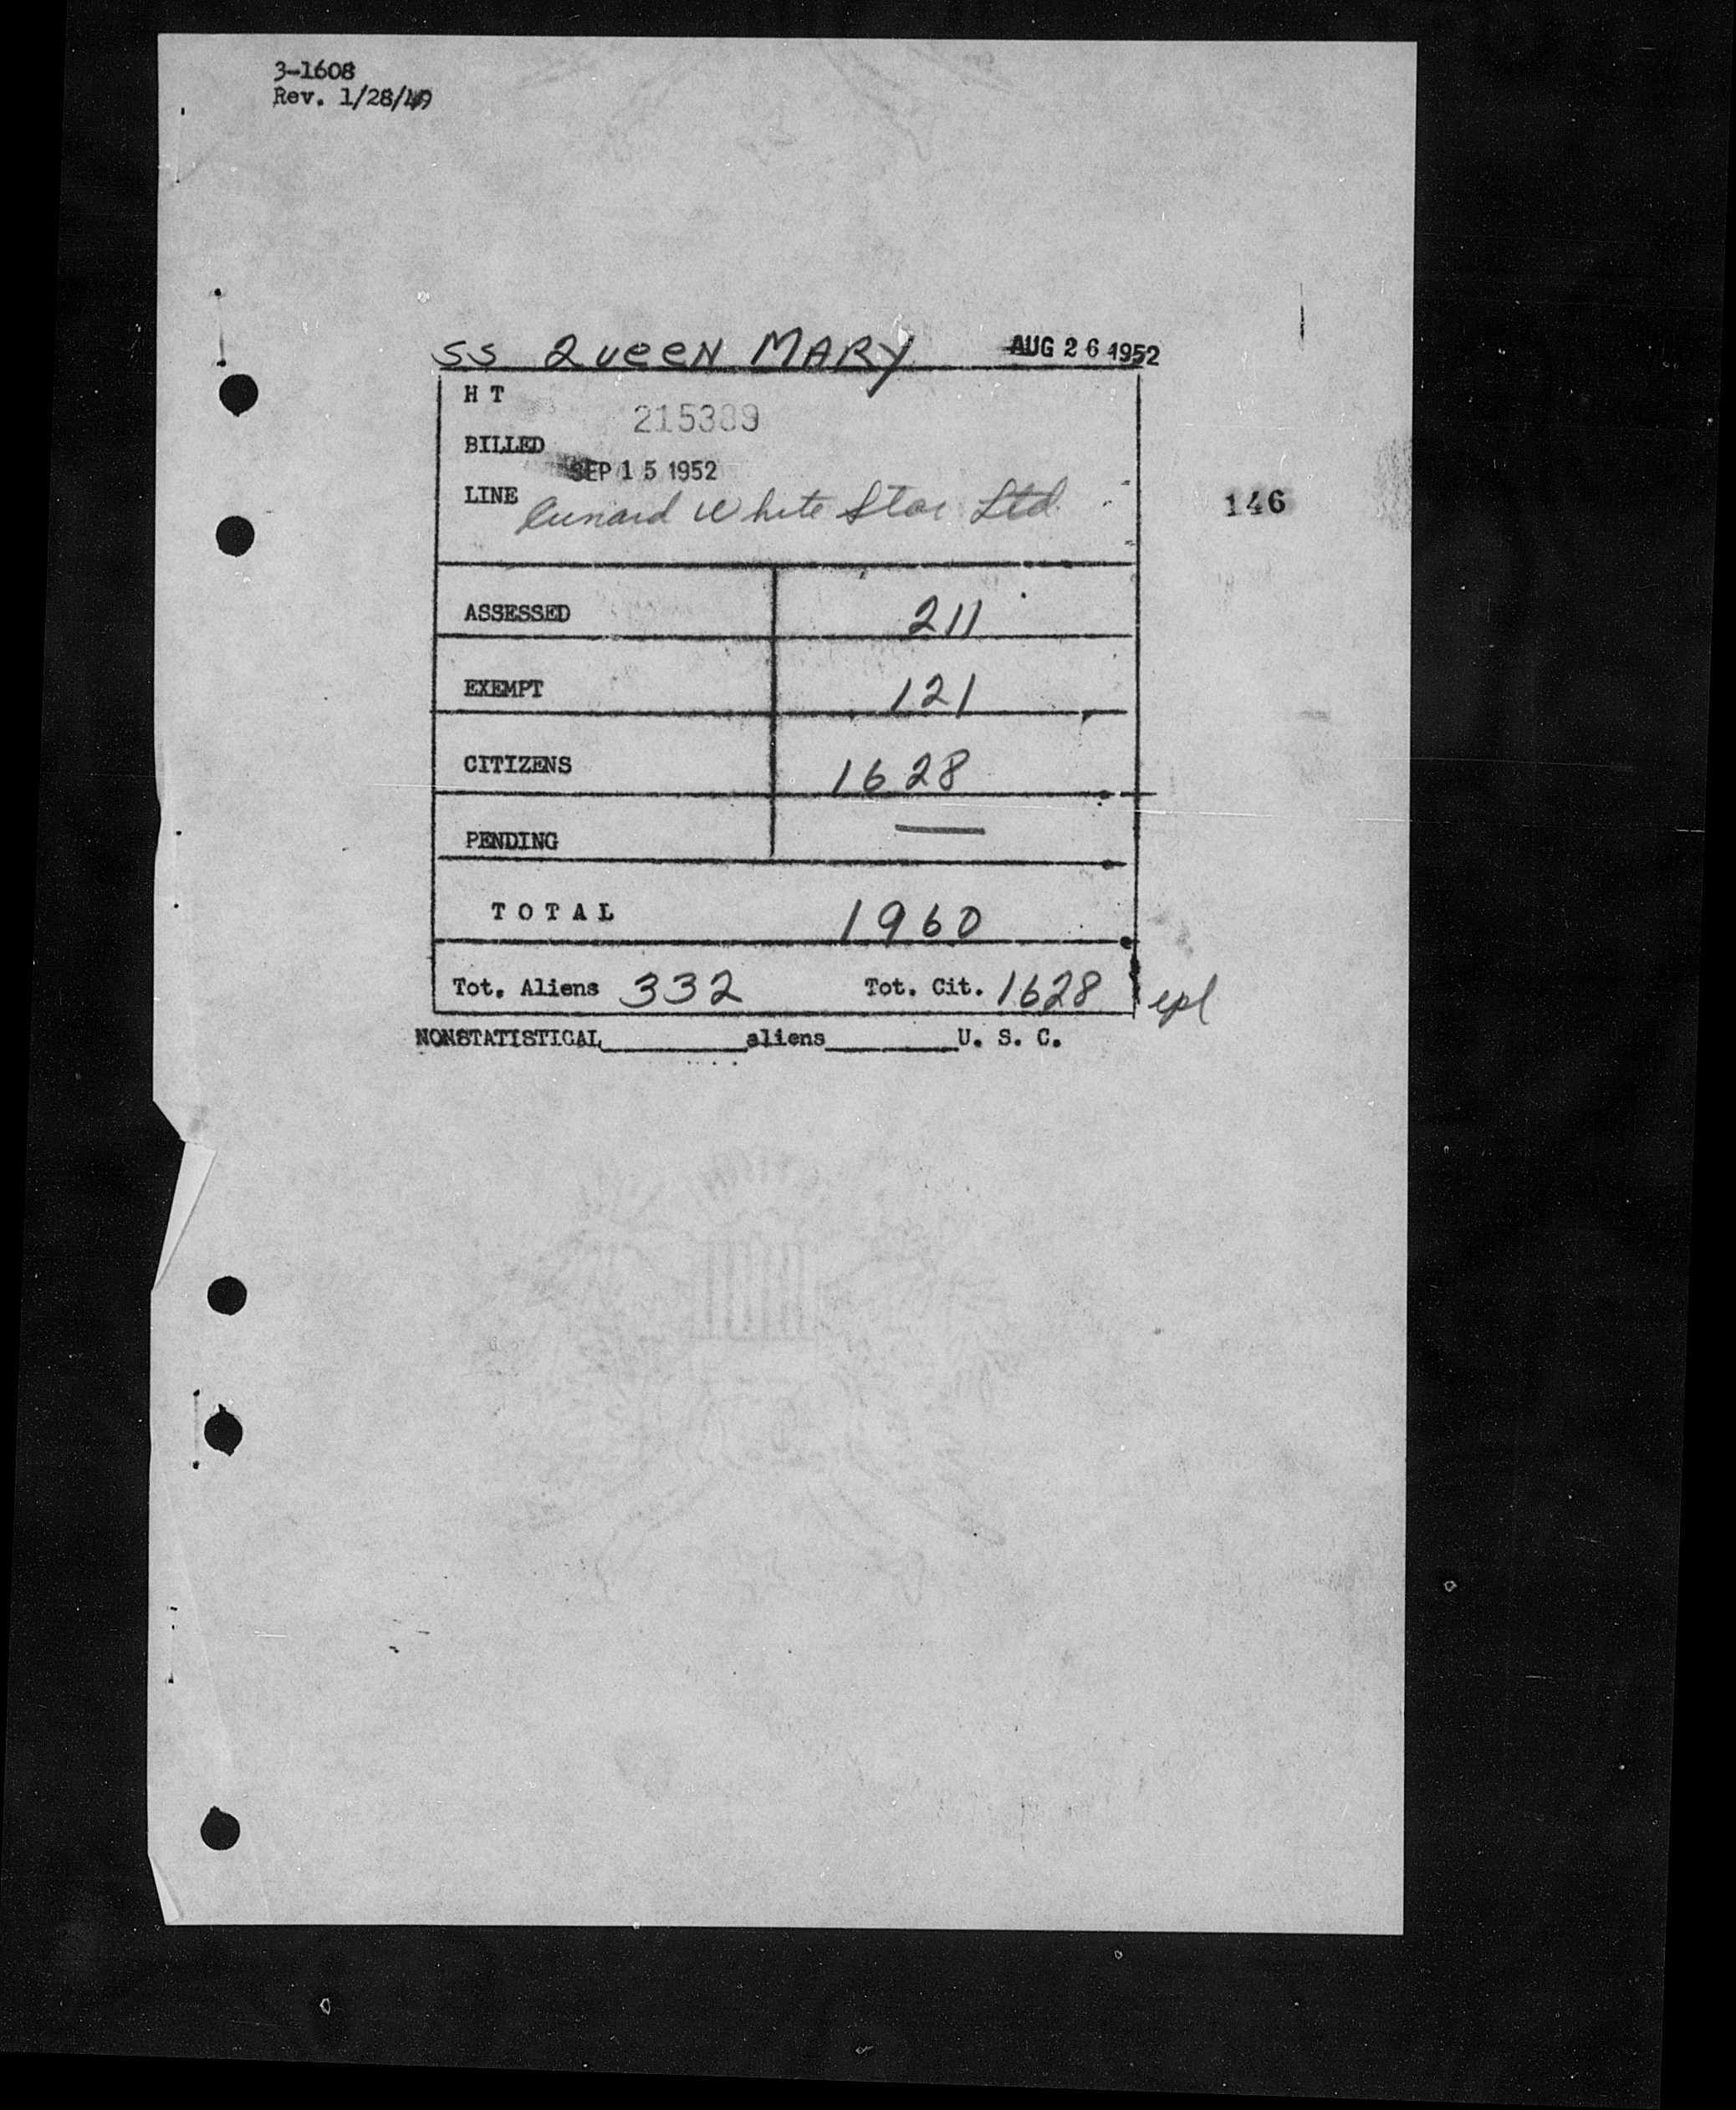 3-1608
Rev. 1/28/49
SS QUEEN MARY AUG 26 1952
H T
215389
BILLED
SEP 15 1952
LINE Cunard White Star Ltd.
146
ASSESSED 211
EXEMPT 121
CITIZENS 1628
PENDING —
TOTAL 1960
Tot. Aliens 332 Tot. Cit. 1628 epl
NONSTATISTICAL_________aliens_________U. S. C.